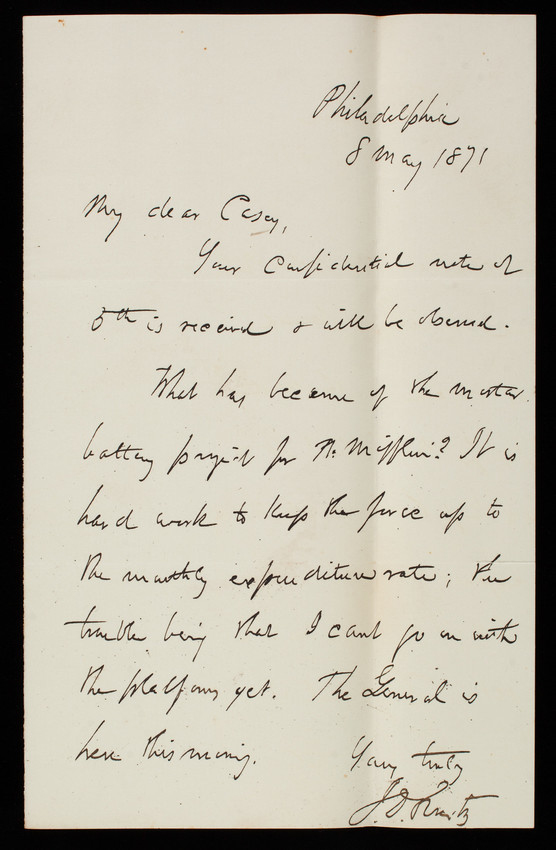 Philadelphia
8 May 1871
My dear Casey,
Your confidential note of
5th is received & will be observed.
What has become of the mortar
battery project for Ft. Mifflin? It is
hard work to keep the force up to
the monthly expenditure rate; the
trouble being that I cant go on with
the platforms yet. The General is
here this morning.
Yours truly
J. D. Kurtz